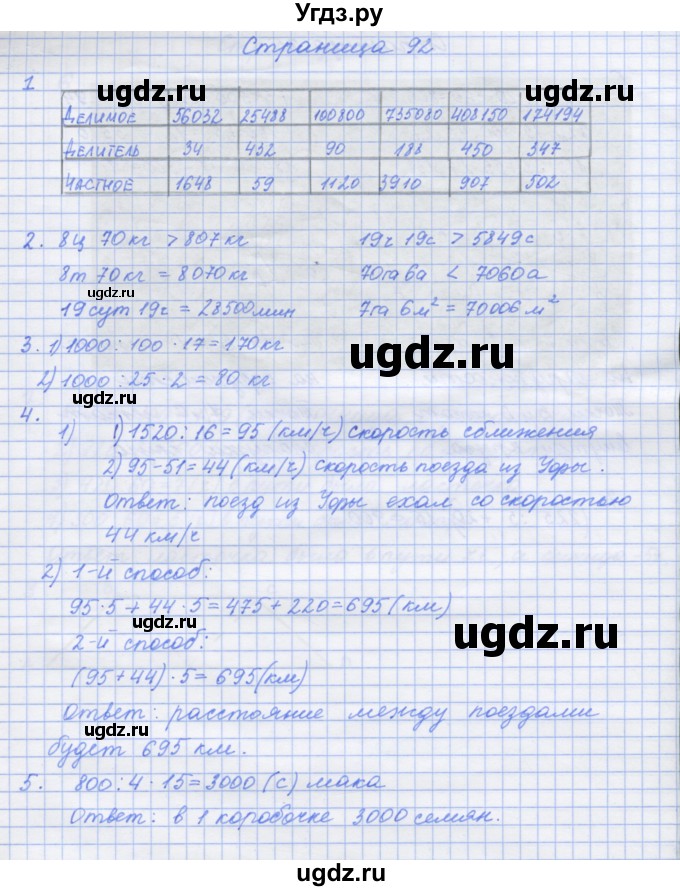 Угдз.ру
Страница 92
1
Делимое 56032 25488 100800 735080 408150 174194
Делитель 34 432 90 188 450 347
Частное 1648 59 1120 3910 907 502
2. 8ц 70кг > 807кг 19ч 19с > 5849с
8т 70кг = 8070кг 70га 6а < 7060а
19сут 19ч = 28500мин 7га 6м² = 70006м²
3. 1) 1000 : 100 · 17 = 170кг
2) 1000 : 25 · 2 = 80 кг
4.
1) 1) 1520 : 16 = 95 (км/ч) скорость сближения
2) 95-51 = 44 (км/ч) скорость поезда из Уфы.
Ответ: поезд из Уфы ехал со скоростью
44 км/ч
2) 1-й способ:
95·5 + 44·5 = 475 + 220 = 695 (км)
2-й способ:
(95+44)·5 = 695(км)
Ответ: расстояние между поездами
будет 695 км.
5. 800 : 4 · 15 = 3000 (с) мака
Ответ: в 1 коробочке 3000 семян.
ugdz.ru
ugdz.ru
ugdz.ru
ugdz.ru
ugdz.ru
ugdz.ru
ugdz.ru
ugdz.ru
ugdz.ru
ugdz.ru